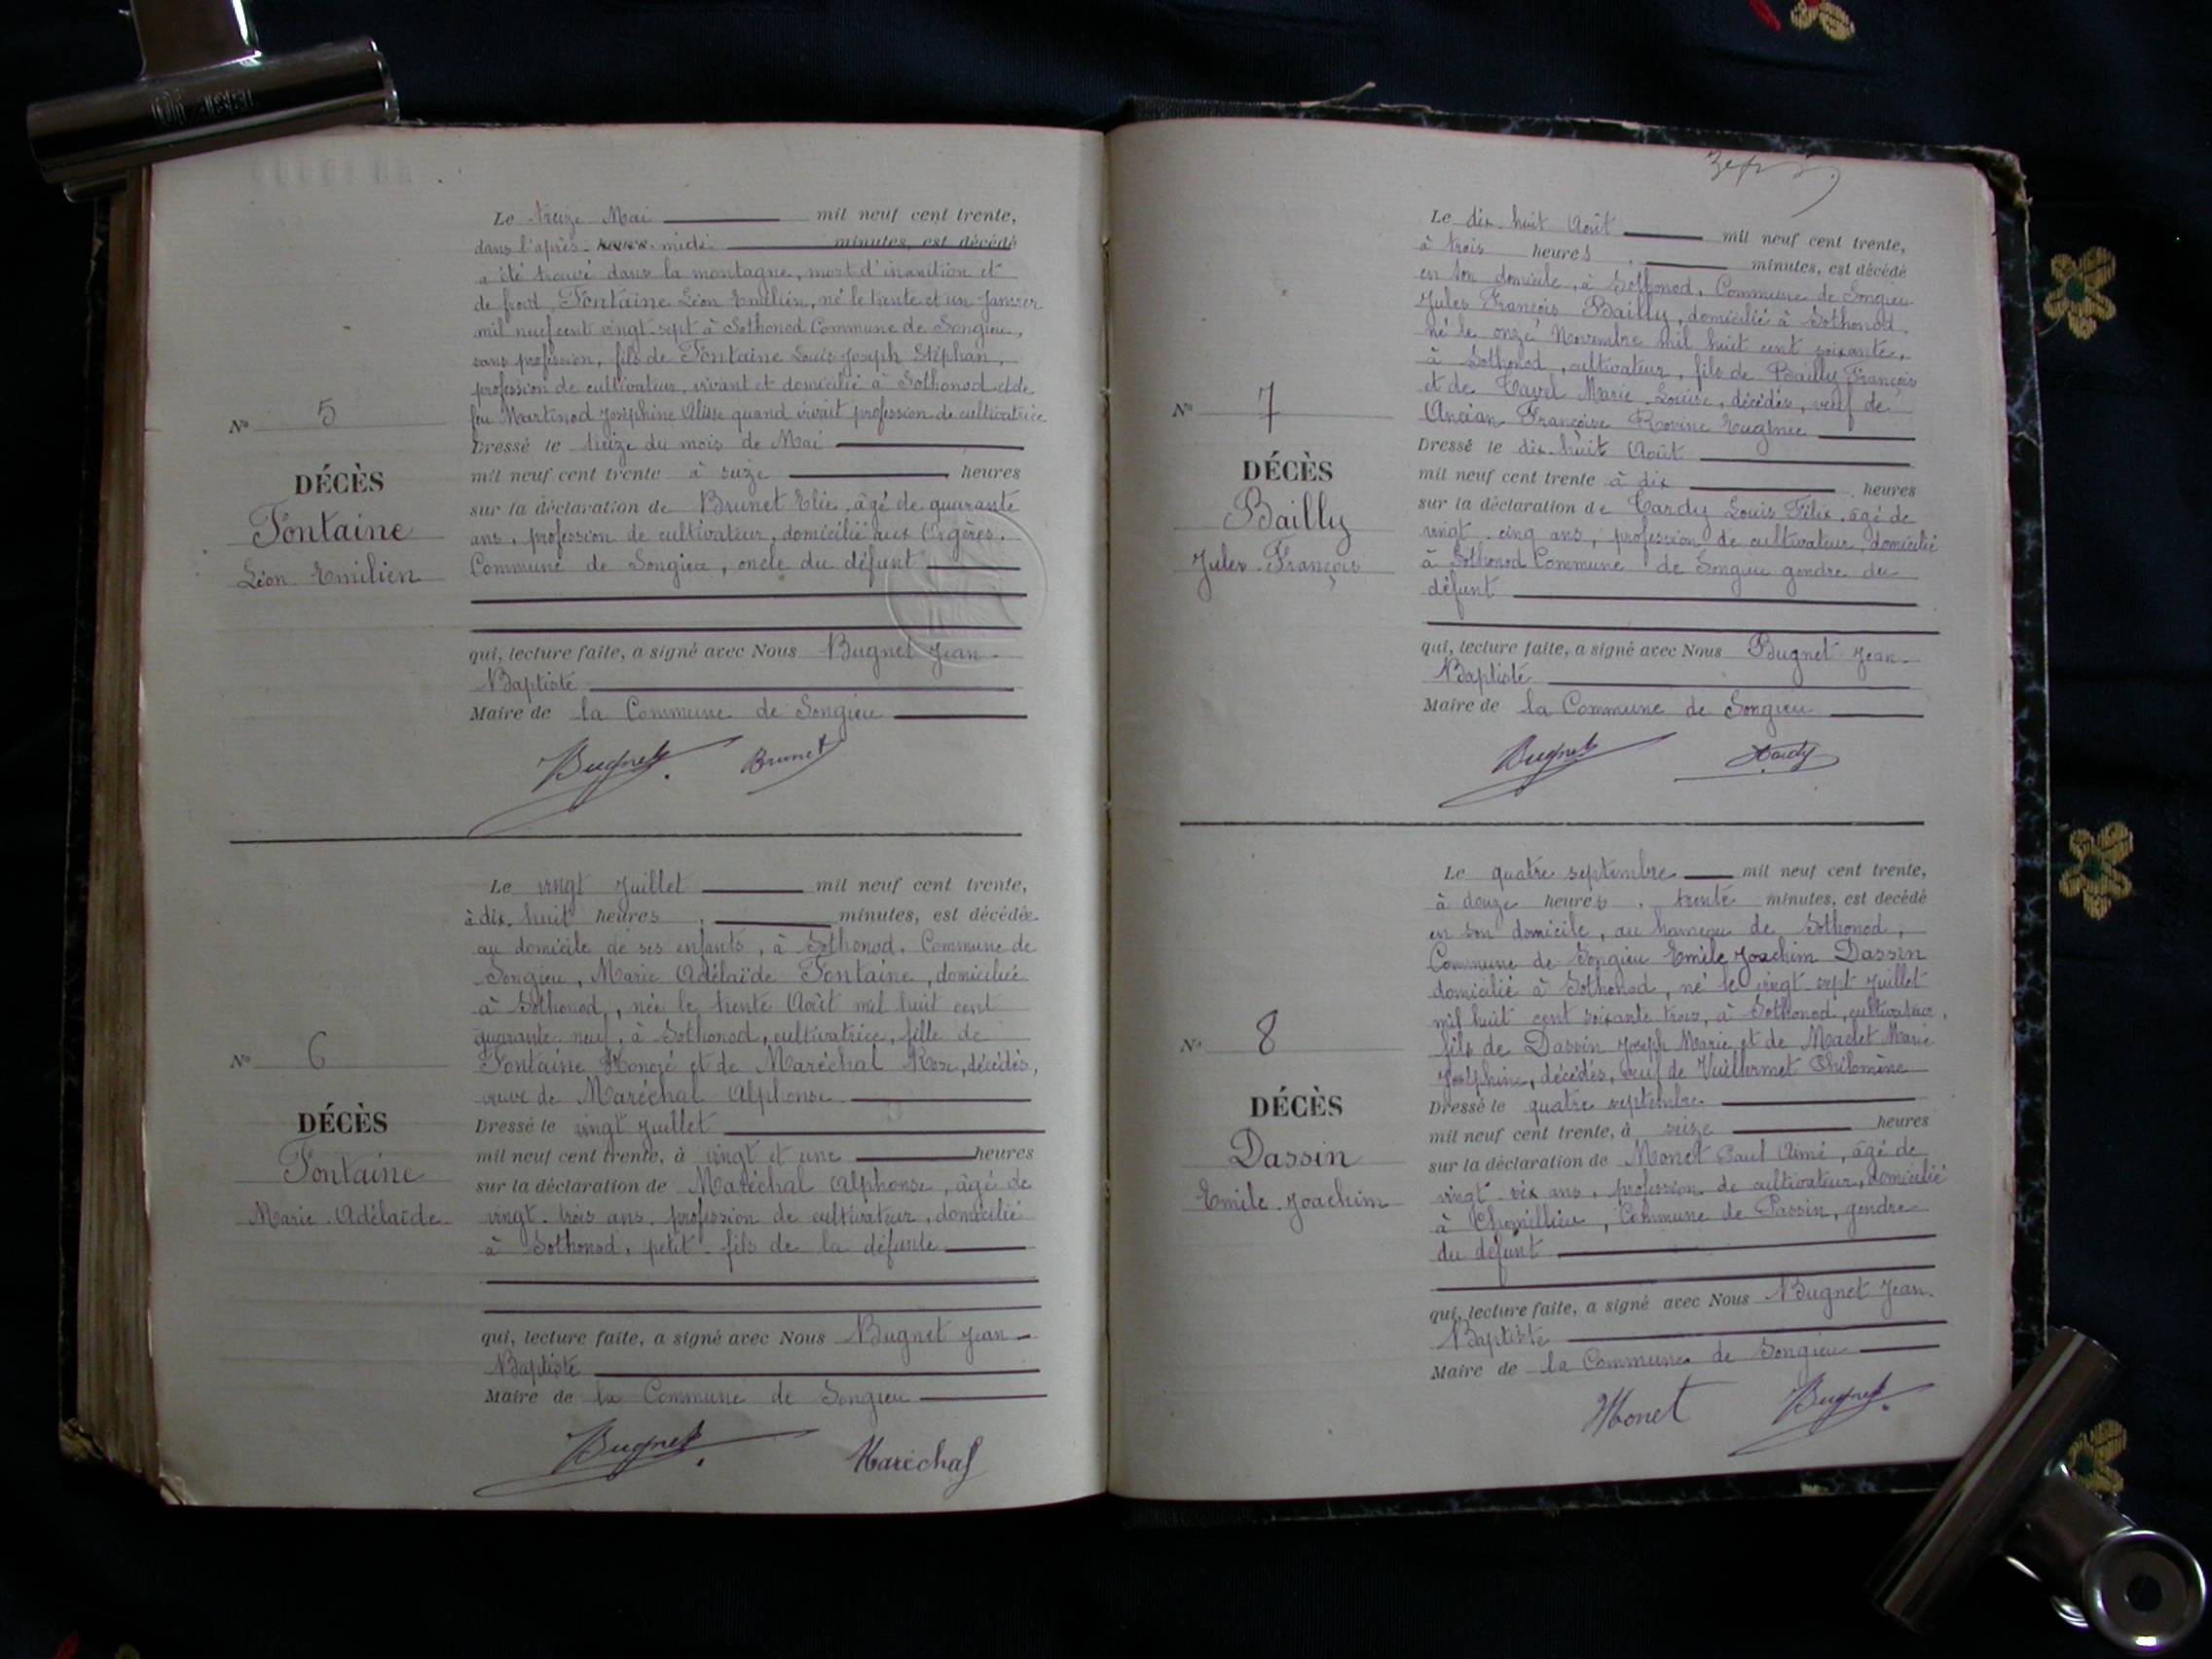 Le treize Mai mil neuf cent trente,
dans l'après-midi minutes, est décédé
a été trouvé dans la montagne, mort d'inanition et
de froid, Fontaine Léon Emilien, né le trente et un Janvier
mil neuf cent vingt-sept à Sothonod Commune de Songieu,
sans profession, fils de Fontaine Louis Joseph Stéphan,
profession de cultivateur, vivant et domicilié à Sothonod et de
feu Martinod Joséphine Alisse quand vivait profession de cultivatrice
Dressé le treize du mois de Mai
mil neuf cent trente à seize heures
sur la déclaration de Brunet Elie, âgé de quarante
ans, profession de cultivateur, domicilié aux Orgères,
Commune de Songieu, oncle du défunt
qui, lecture faite, a signé avec Nous Bugnet Jean-
Baptiste
Maire de la Commune de Songieu
Bugnet Brunet
No 5
DÉCÈS
Fontaine
Léon Emilien
Le vingt Juillet mil neuf cent trente,
à dix-huit heures, minutes, est décédée
au domicile de ses enfants, à Sothonod, Commune de
Songieu, Marie Adélaïde Fontaine, domiciliée
à Sothonod, née le trente Août mil huit cent
quarante-neuf, à Sothonod, cultivatrice, fille de
Fontaine Honoré et de Maréchal Rose, décédés,
veuve de Maréchal Alphonse
Dressé le vingt Juillet
mil neuf cent trente, à vingt et une heures
sur la déclaration de Maréchal Alphonse, âgé de
vingt-trois ans, profession de cultivateur, domicilié
à Sothonod, petit-fils de la défunte
qui, lecture faite, a signé avec Nous Bugnet Jean-
Baptiste
Maire de la Commune de Songieu
Bugnet Maréchal
No 6
DÉCÈS
Fontaine
Marie-Adélaïde
Le dix-huit Août mil neuf cent trente,
à trois heures, minutes, est décédé
en son domicile, à Sothonod, Commune de Songieu
Jules François Bailly, domicilié à Sothonod,
né le onze Novembre mil huit cent soixante,
à Sothonod, cultivateur, fils de Bailly François
et de Tavel Marie-Louise, décédés, veuf de
Ancian Françoise Rovine Eugénie
Dressé le dix-huit Août
mil neuf cent trente à dix heures
sur la déclaration de Tardy Louis Félix, âgé de
vingt-cinq ans, profession de cultivateur, domicilié
à Sothonod Commune de Songieu gendre du
défunt
qui, lecture faite, a signé avec Nous Bugnet Jean-
Baptiste
Maire de la Commune de Songieu
Bugnet Tardy
No 7
DÉCÈS
Bailly
Jules-François
Le quatre septembre mil neuf cent trente,
à douze heures, trente minutes, est décédé
en son domicile, au hameau de Sothonod,
Commune de Songieu Emile Joachim Dassin
domicilié à Sothonod, né le vingt-sept Juillet
mil huit cent soixante trois, à Sothonod, cultivateur,
fils de Dassin Joseph Marie et de Maclet Marie
Joséphine, décédés, veuf de Vuillermet Philomène
Dressé le quatre septembre
mil neuf cent trente, à seize heures
sur la déclaration de Monet Paul Aimé, âgé de
vingt-six ans, profession de cultivateur, domicilié
à Chemillieu, Commune de Passin, gendre
du défunt
qui, lecture faite, a signé avec Nous Bugnet Jean-
Baptiste
Maire de la Commune de Songieu
Monet Bugnet
No 8
DÉCÈS
Dassin
Emile-Joachim